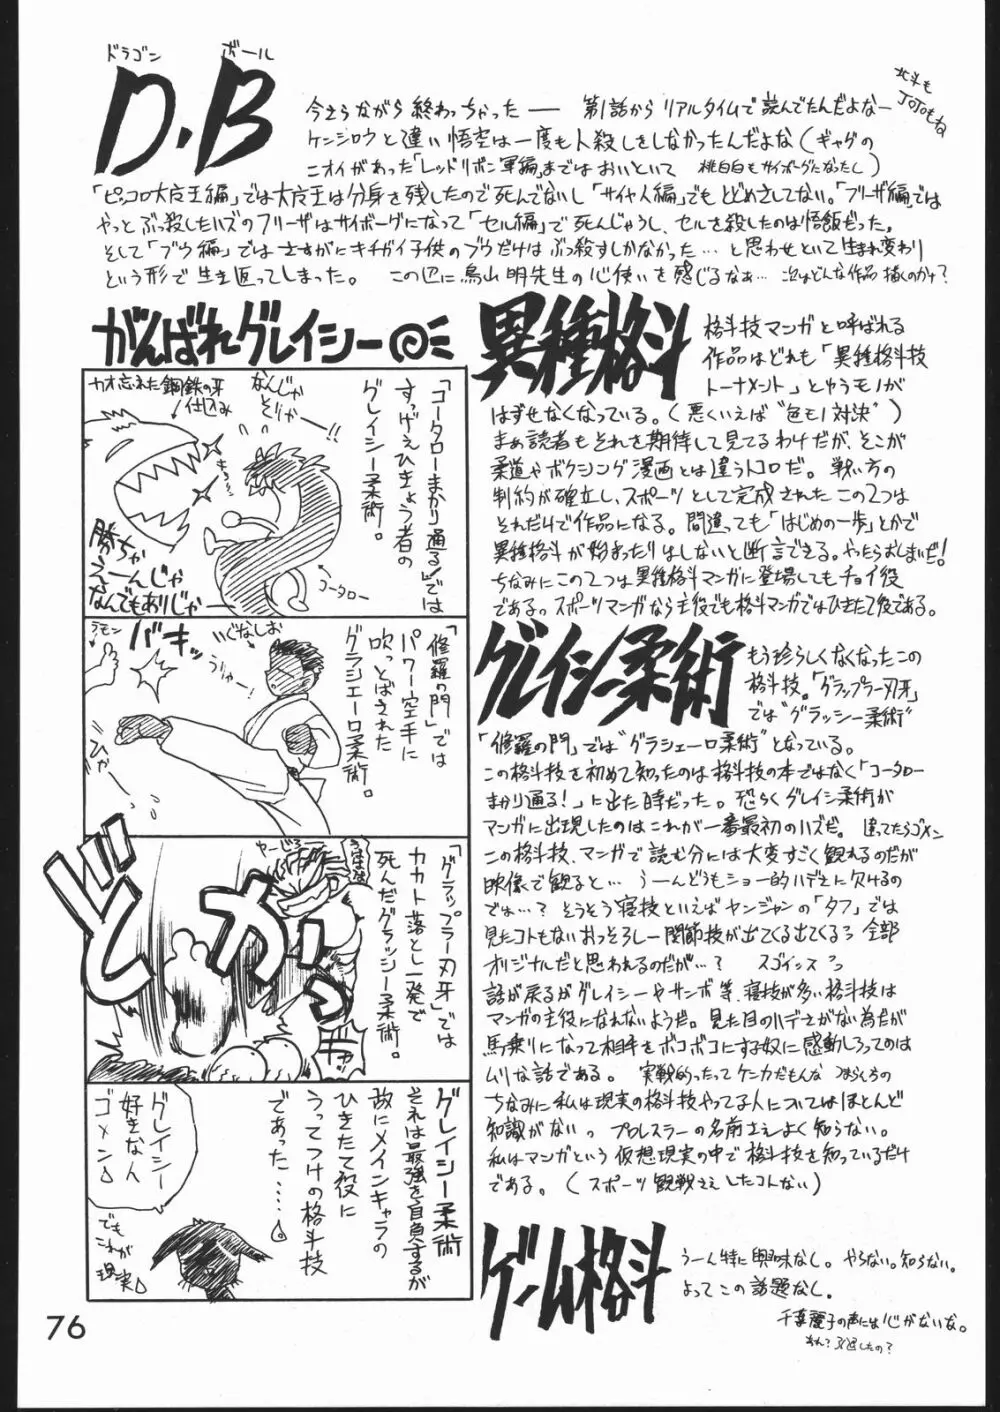 ドラゴン ボール
D.B
北斗も
JOJOもね
今さらながら終わっちゃった── 第1話からリアルタイムで読んでたんだよなー
ケンジロウと違い悟空は一度も人殺しをしなかったんだよな(ギャグの
ニオイがあった「レッドリボン軍編」まではおいといて 桃白白もサイボーグになったし)
「ピッコロ大魔王編」では大魔王は分身を残したので死んでないし「サイヤ人編」でもとどめさしてない。「フリーザ編」では
やっとぶっ殺したハズのフリーザはサイボーグになって「セル編」で死んじゃうし、セルを殺したのは悟飯だった。
そして「ブウ編」ではさすがにキチガイ子供のブウだけはぶっ殺すしかなかった…と思わせといて生まれ変わり
という形で生き返ってしまった。 この辺に鳥山明先生の心使いを感じるなぁ… 次はどんな作品描くのかナ?
がんばれグレイシー
カオ忘れた鋼鉄の牙
仕込み
なんじゃ
そりゃー!!
「コータローまかり通る!」では
すっげえひきょう者の
グレイシー柔術。
勝ちゃ
えーんじゃ
なんでもありじゃー
コータロー
ラモン
バキッ
いぐなしお
「修羅の門」では
パワー空手に
吹っとばされた
グラシエーロ柔術。
ひゃー
ドカッ
「グラップラー刃牙」では
カカト落とし一発で
死んだグラッシー柔術。
グレイシー柔術
それは最強を自負するが
故にメインキャラの
ひきたて役に
うってつけの格斗技
であった……。
グレイシー
好きな人
ゴメン
でも
これが
現実
異種格斗
格斗技マンガと呼ばれる
作品はどれも「異種格斗技
トーナメント」とゆうモノが
はずせなくなっている。(悪くいえば“色もノ対決”)
まぁ読者もそれを期待して見てるわけだが、そこが
柔道やボクシング漫画とは違うトコロだ。 戦い方の
制約が確立し、スポーツとして完成されたこの2つは
それだけで作品になる。間違っても「はじめの一歩」とかで
異種格斗が始まったりはしないと断言できる。やったらおしまいだ!
ちなみにこの2つは異種格斗マンガに登場してもチョイ役
である。スポーツマンガなら主役でも格斗マンガではひきたて役である。
グレイシー柔術
もう珍らしくなくなったこの
格斗技。「グラップラー刃牙」
では“グラッシー柔術”
「修羅の門」では“グラシエーロ柔術”となっている。
この格斗技を初めて知ったのは格斗技の本ではなく「コータロー
まかり通る!」に出た時だった。恐らくグレイシー柔術が
マンガに出現したのはこれが一番最初のハズだ。 違ってたらゴメン
この格斗技、マンガで読む分には大変すごく観れるのだが
映像で観ると… うーんどうもショー的ハデさに欠けるの
では…? そうそう寝技といえばヤンジャンの「タフ」では
見たコトもないおっそろしー関節技が出てくる出てくる 全部
オリジナルだと思われるのだが…? スゴインス
話が戻るがグレイシーやサンボ等、寝技が多い格斗技は
マンガの主役になれないようだ。見た目のハデさがない為だが
馬乗りになって相手をボコボコにする奴に感動しろってのは
ムリな話である。 実戦的ったってケンカだもんな
ちなみに私は現実の格斗技やってる人についてはほとんど
知識がない。 プロレスラーの名前さえよく知らない。
私はマンガという仮想現実の中で格斗技を知っているだけ
である。(スポーツ観戦さえしたコトない)
ゲーム格斗
うーん特に興味なし。やらない。知らない。
よってこの話題なし。
千葉麗子の声には心がないな。
あれ?引退したの?
76